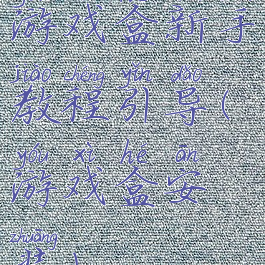 游戏盒新手
jiāo chéng yǐn dǎo
教程引导(
yóu xì hé ān
游戏盒安
zhuāng